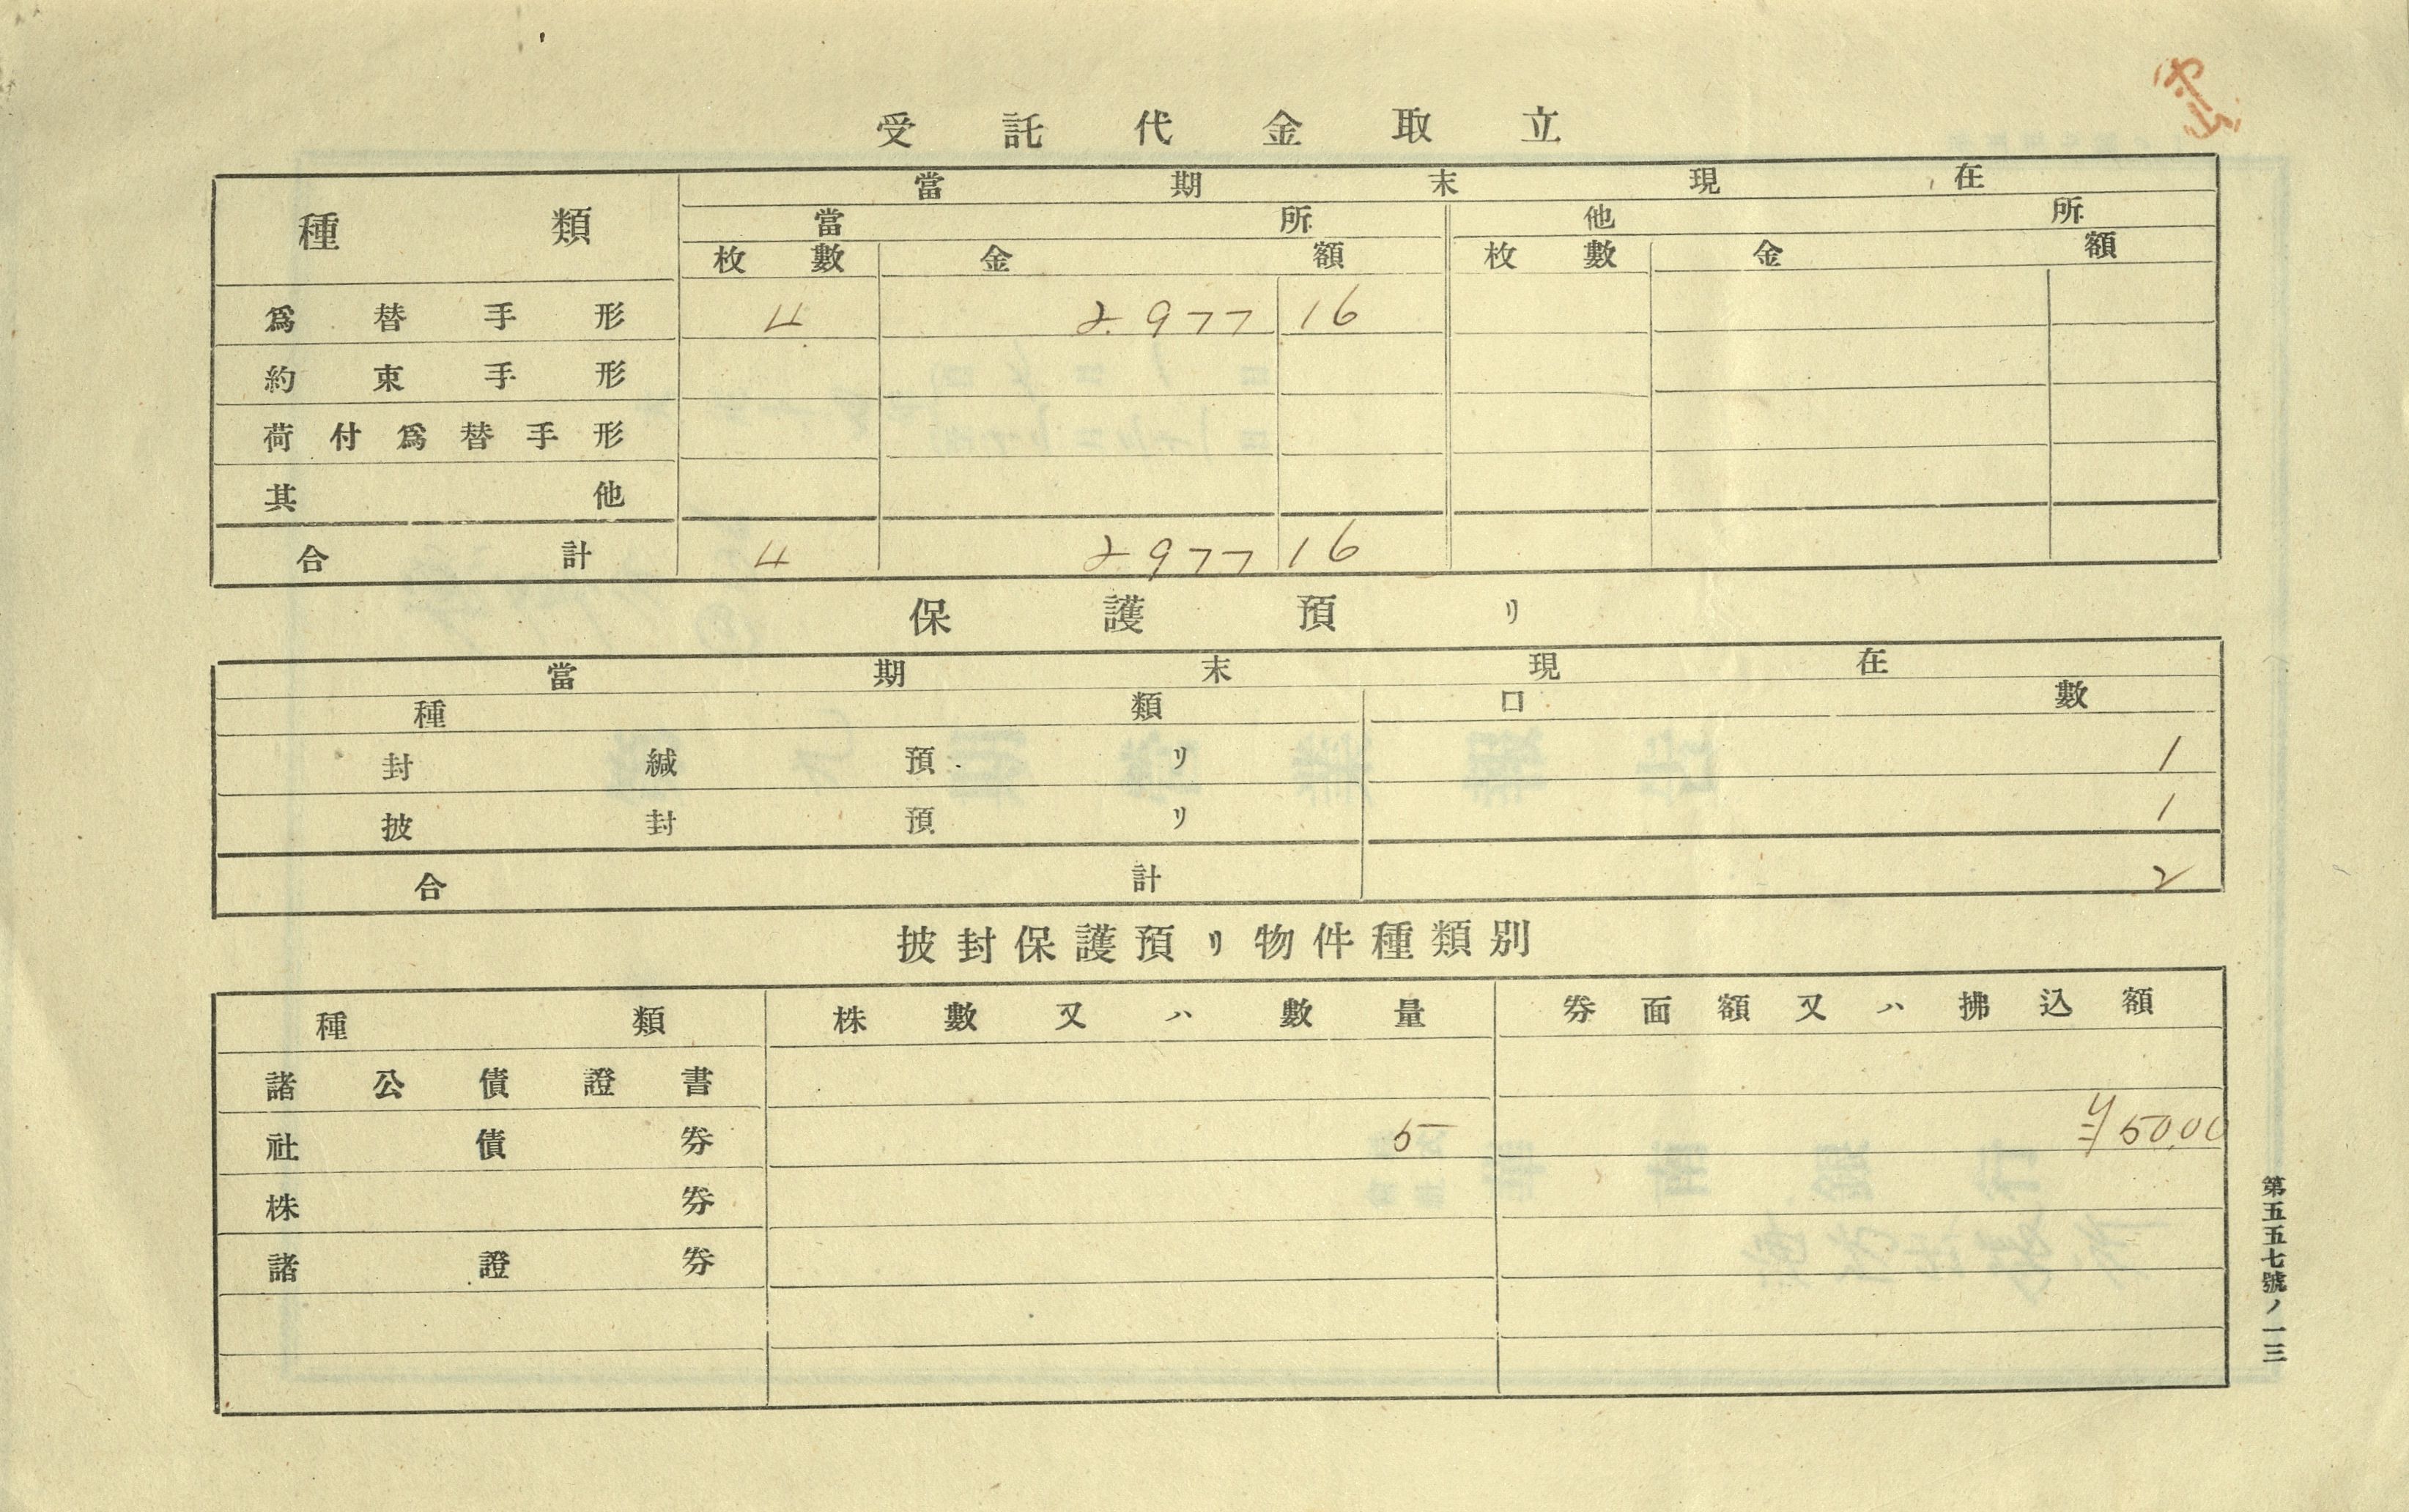 受託代金取立
種類 當期末現在
當所 他所
枚數 金額 枚數 金額
爲替手形 4 2.977 16
約束手形
荷付爲替手形
其他
合計 4 2.977 16
保護預リ
當期末現在
種類 口數
封緘預リ 1
披封預リ 1
合計 2
披封保護預リ物件種類別
種類 株數又ハ數量 券面額又ハ拂込額
諸公債證書
社債券 5 ¥50.00
株券
諸證券
第五五七號ノ一三